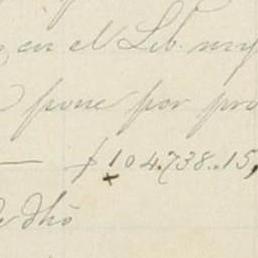 en el Lib. my
pone por pro
— $ 104.738..15,
dhō